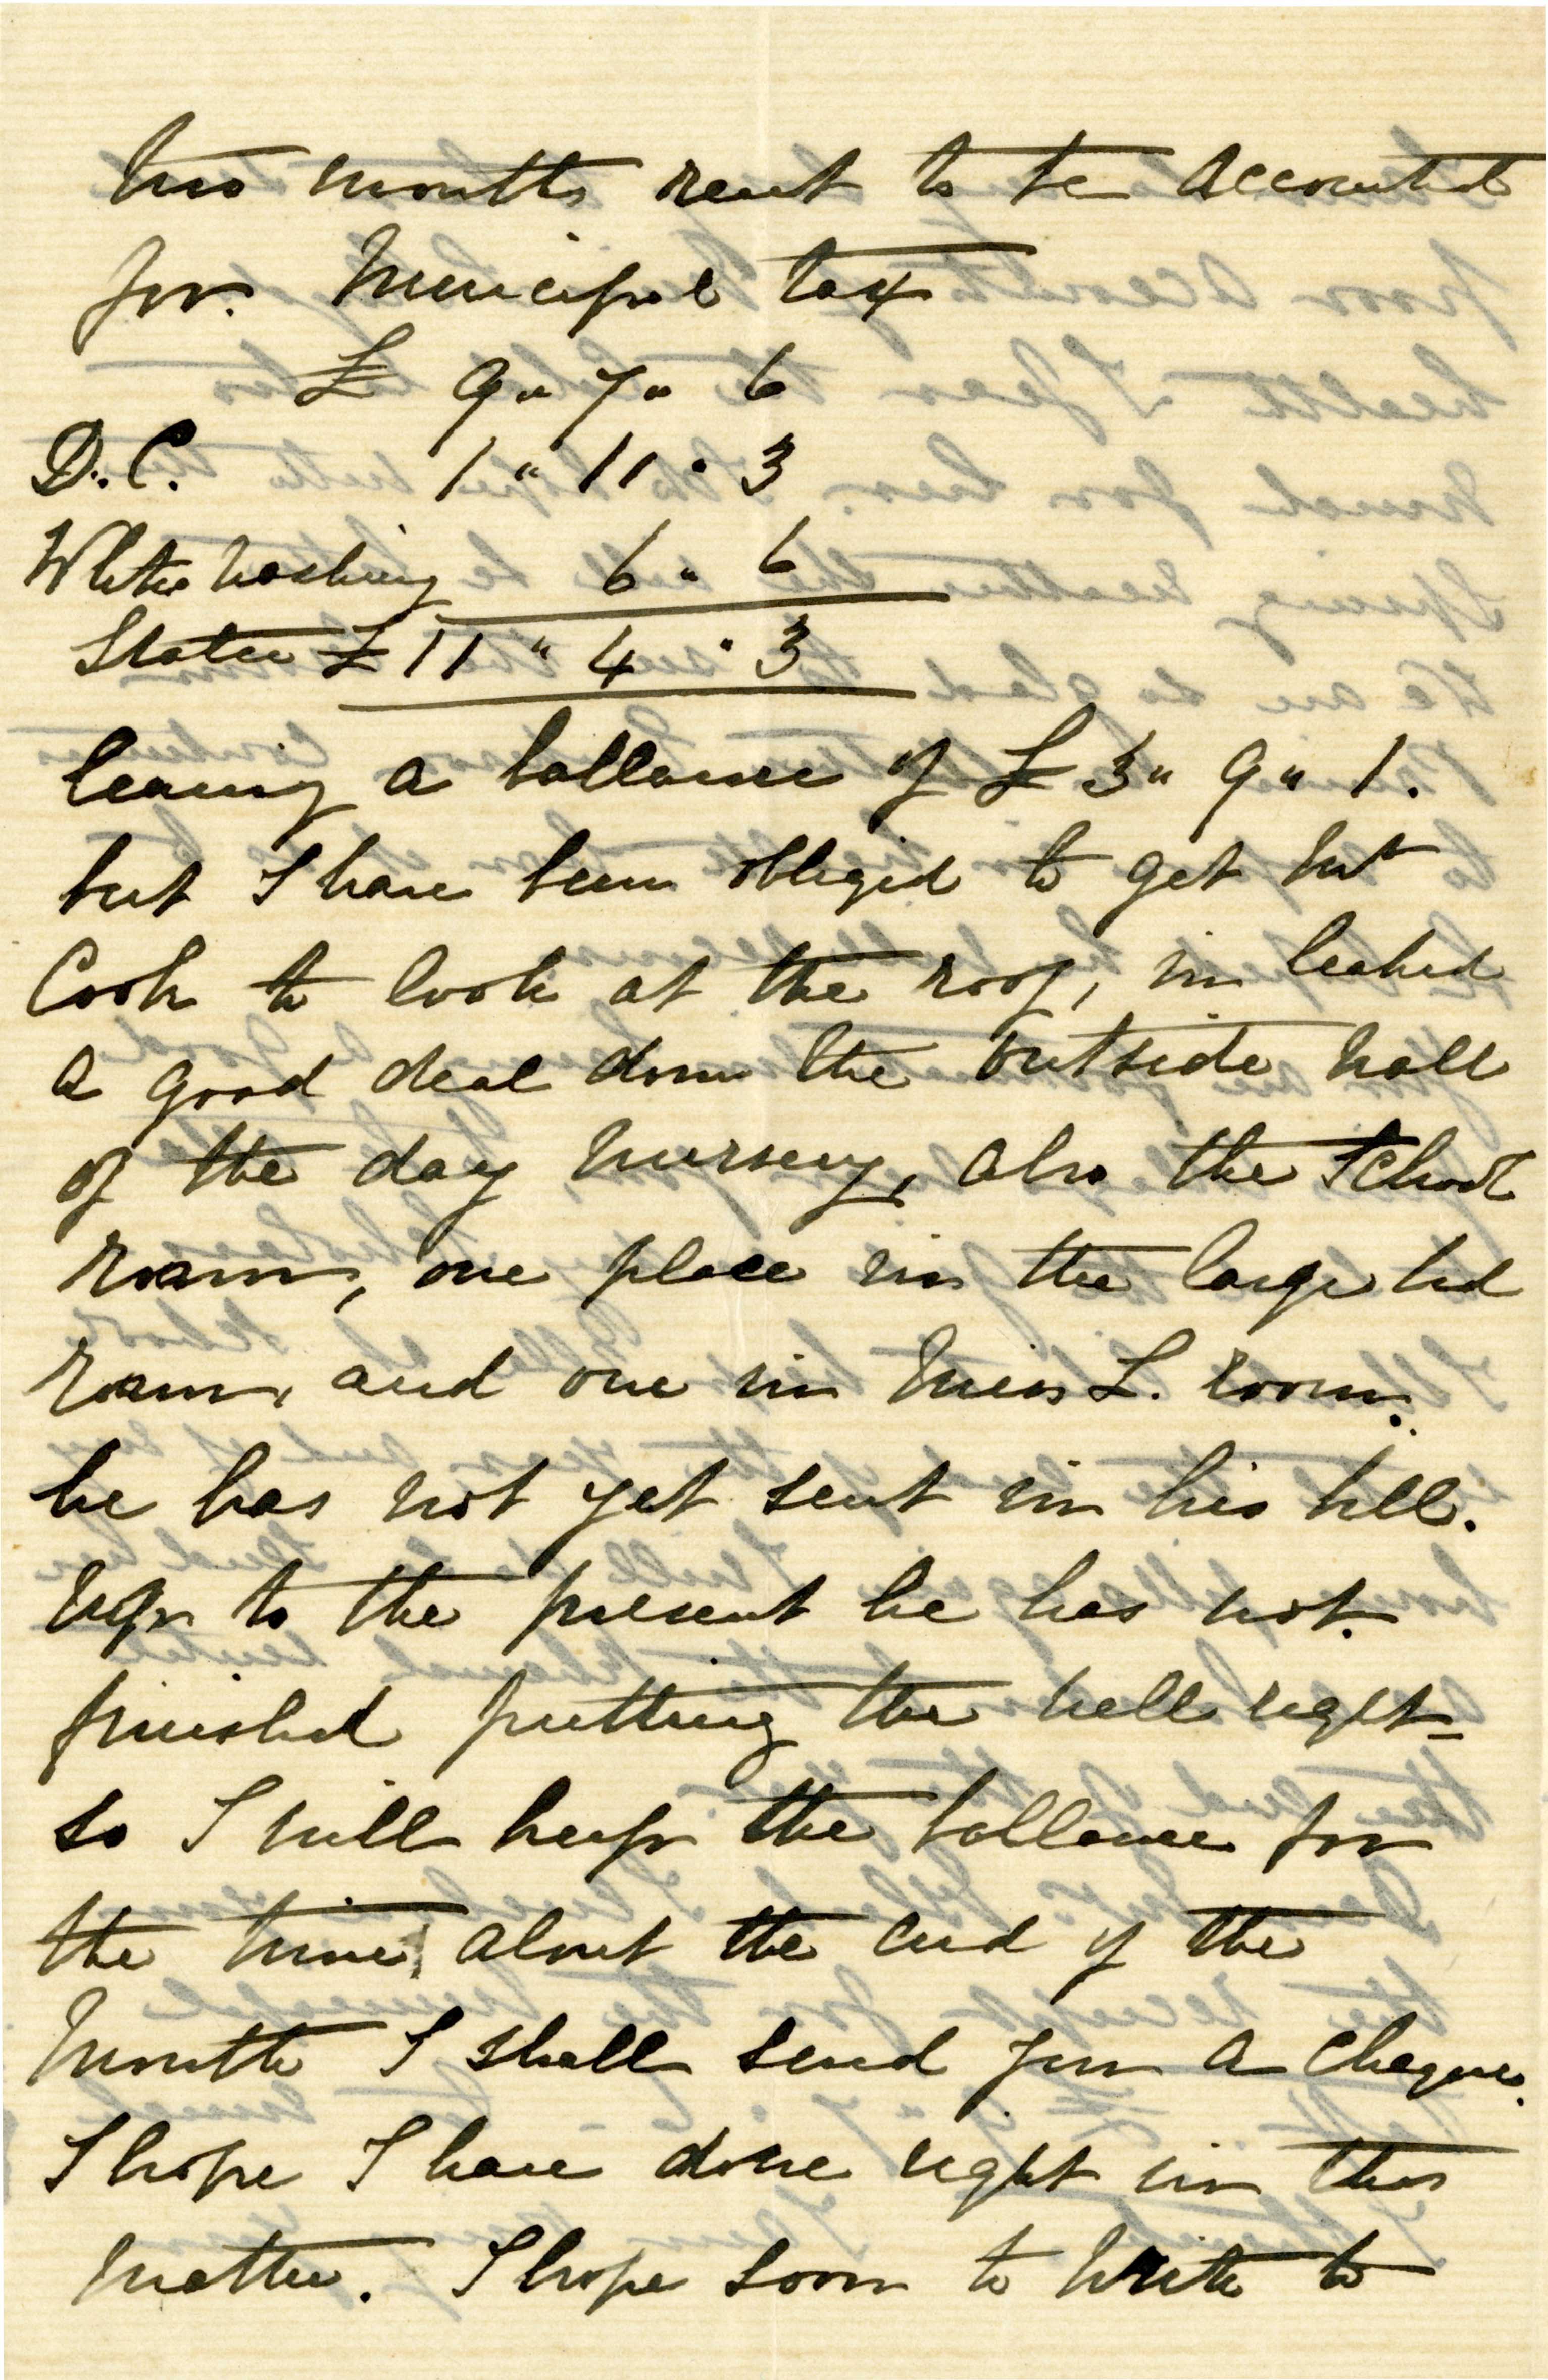 two months rent to be accounted
for. Municipal tax
£ 9 " 7 " 6
D.C. 1 " 11 " 3
White washing 6 " 6
£ 11 " 4 " 3
leaving a ballance of £ 3 " 9 " 1.
but I have been obliged to get
Cook to look at the roof, in leaked
a good deal down the outside wall
of the day nursery, also the School
room, one place in the large bed
room, and one in Miss L. room.
he has not yet sent in his bill.
up to the present he has not
finished putting the well right
so I will keep the ballance for
the time, about the end of the
Month I shall send you a cheque.
I hope I have done right in this
matter. I hope soon to write to